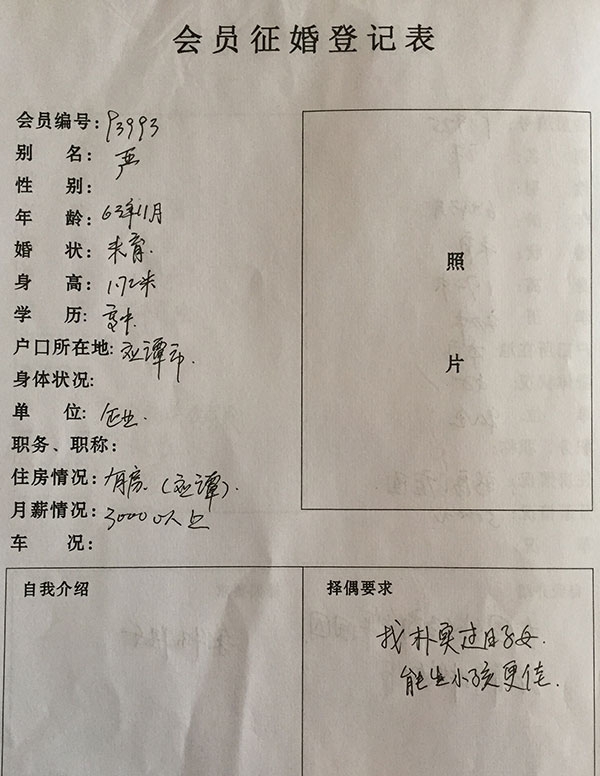 会员征婚登记表
会员编号: 93993
别 名: 严
性 别:
年 龄: 63年11月
婚 状: 未育.
身 高: 1.72米
学 历: 高中.
户口所在地: 应谭市.
身体状况:
单 位: 企业.
职务、职称:
住房情况: 有房. (应谭).
月薪情况: 3000以上
车 况:
照
片
自我介绍
择偶要求
找朴实过日子女.
能生小孩更佳.